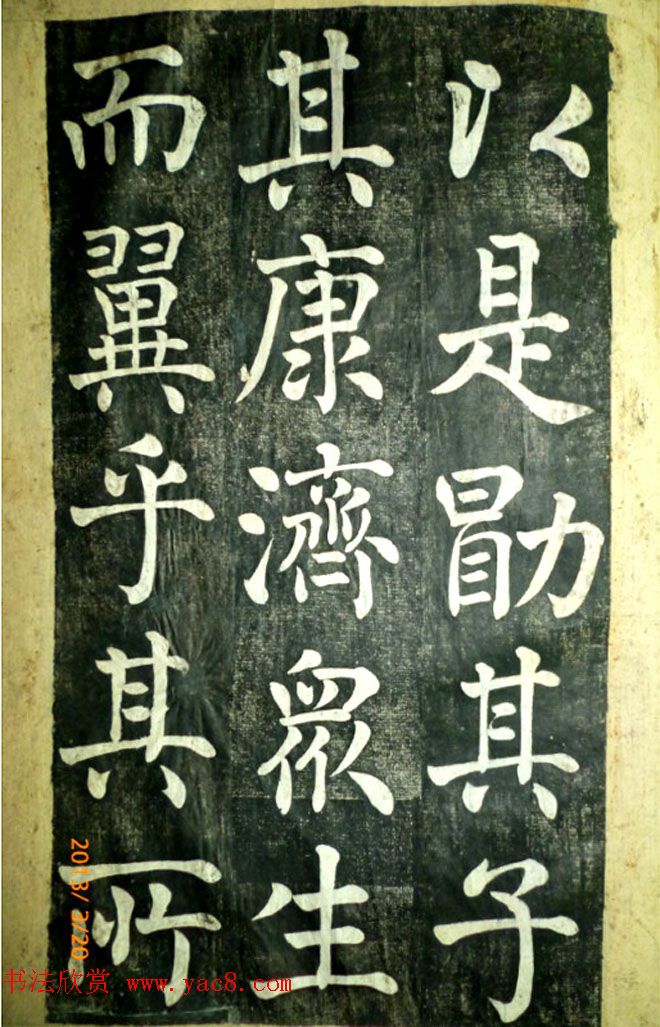 以是勖其子
其康濟眾生
而翼乎其所
2013/ 3/20
书法欣赏 www.yac8.com